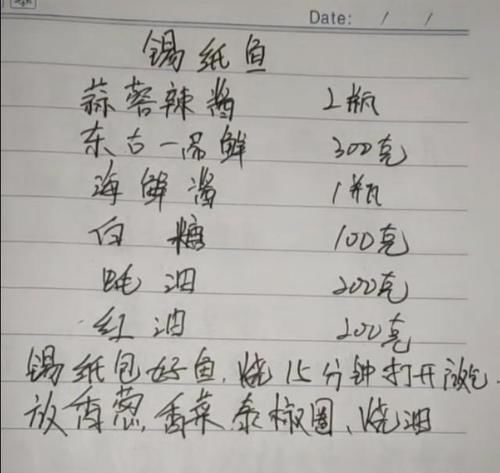 Date: / /
锡纸鱼
蒜蓉辣酱 2瓶
东古一品鲜 300克
海鲜酱 1瓶
白糖 100克
蚝油 200克
红油 200克
锡纸包好鱼,烧15分钟打开放
放香葱,香菜,泰椒圈、烧油